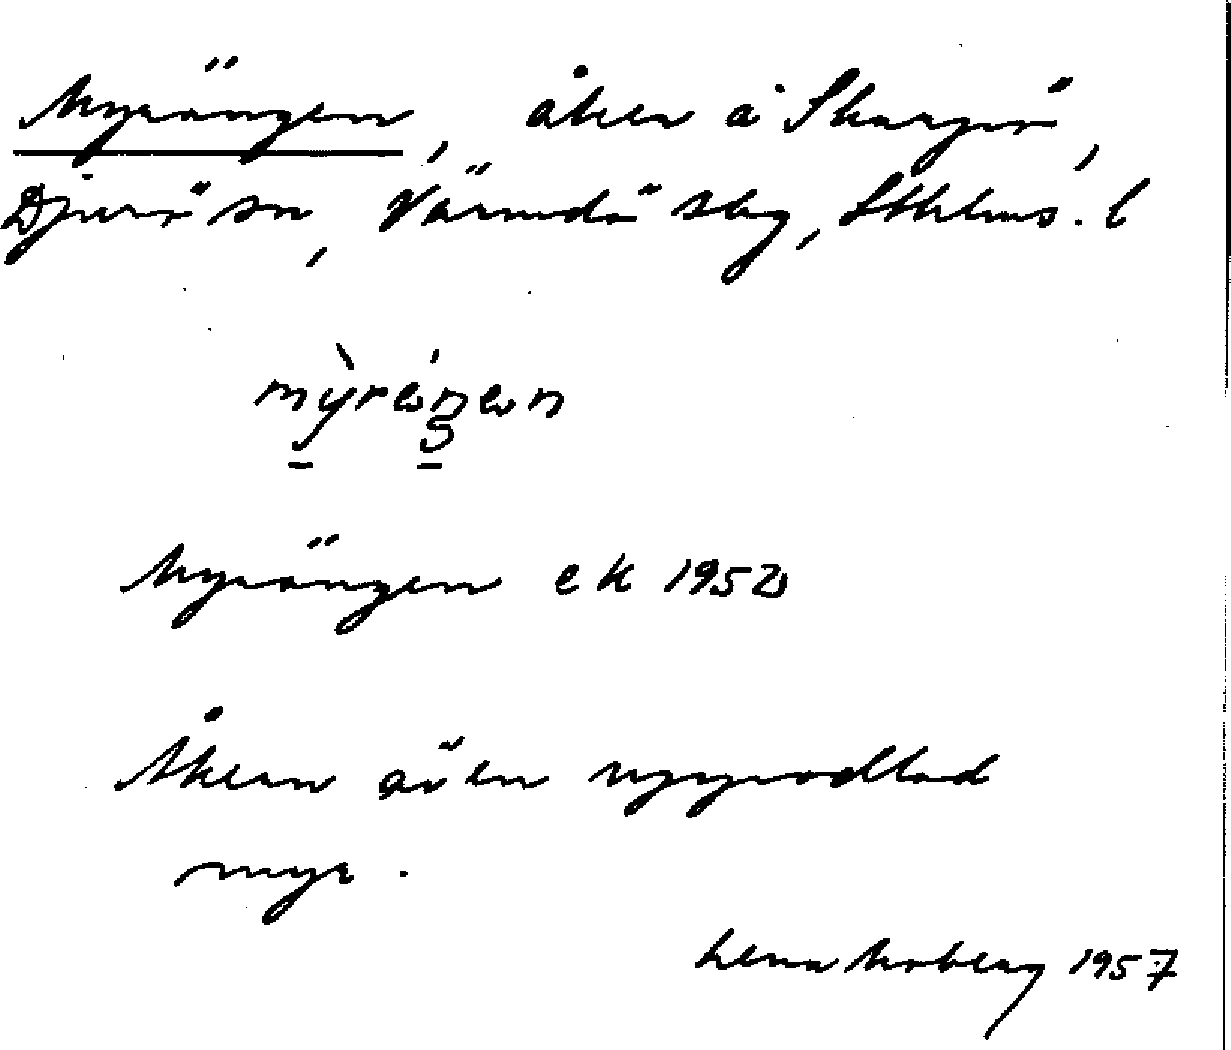 Myrängen, åker å Skarpö,
Djurö sn, Värmdö skg, Sthlms. l
mỳrä́ŋen
Myrängen ek 1952
Åkern är en uppodlad
myr.
Lena Moberg 1957